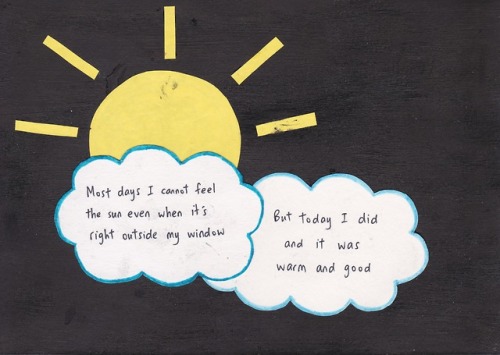 Most days I cannot feel
the sun even when it's
right outside my window
But today I did
and it was
warm and good